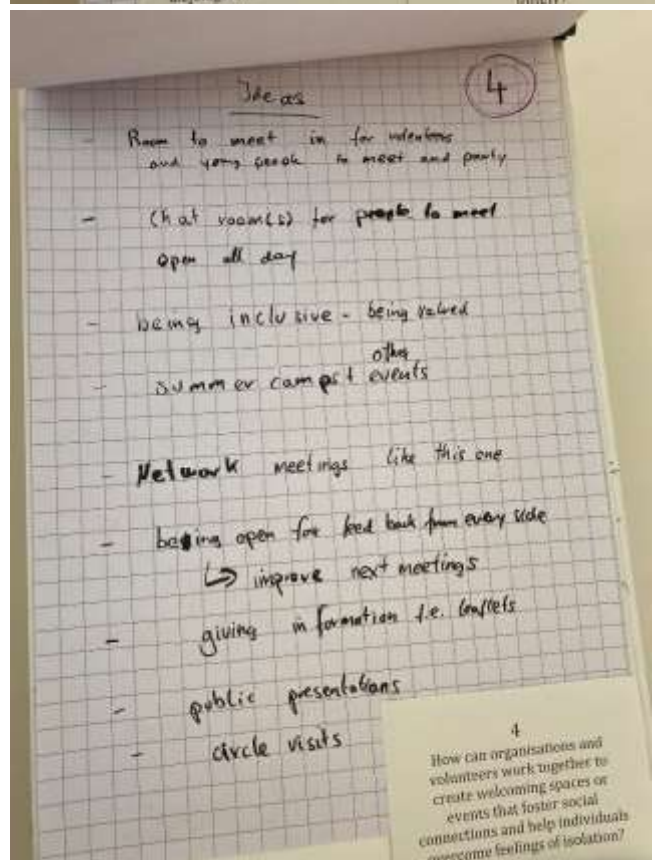 Ideas
4
- Room to meet in for volunteers
and young people to meet and party
- Chat room(s) for people to meet
open all day
- being inclusive - being valued
- summer camps + other events
- Network meetings like this one
- being open for feed back from every side
↳ improve next meetings
- giving information f.e. leaflets
- public presentations
- circle visits
4
How can organisations and
volunteers work together to
create welcoming spaces or
events that foster social
connections and help individuals
overcome feelings of isolation?